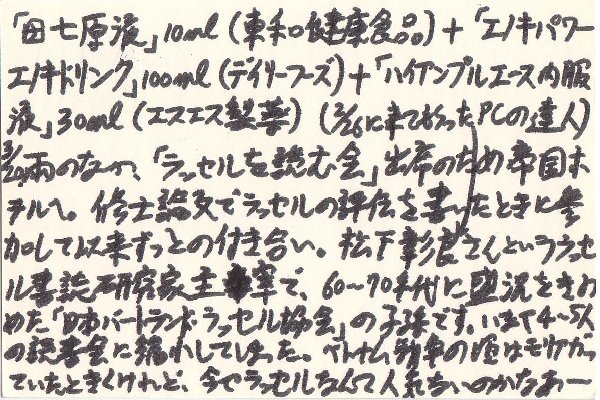 「田七原液」10ml(東和健康食品)+「エノキパワー
エノキドリンク」100ml(デイリーフーズ)+「ハイアンプルエース内服
液」30ml(エスエス製薬) (2/26に来てもらったPCの達人)
3/20雨のなか、「ラッセルを読む会」出席のため帝国ホ
テルへ。修士論文でラッセルの評伝を書いたときに参
加して以来ずっとの付き合い。松下彰良さんというラッセ
ル書誌研究家主宰で、60〜70年代に盛況をきわ
めた「日本バートランド・ラッセル協会」の子孫です。いまや4〜5人
の読書会に縮小してしまった。ベトナム戦争の頃はモリアガっ
ていたときくけれど、今やラッセルなんて人気ないのかなあー